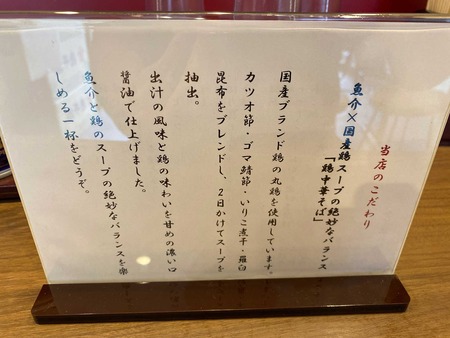 当店のこだわり
魚介×国産鶏スープの絶妙なバランス
「鶏中華そば」
国産ブランド鶏の丸鶏を使用しています。
カツオ節・ゴマ鯖節・いりこ煮干・羅臼
昆布をブレンドし、2日かけてスープを
抽出。
出汁の風味と鶏の味わいを甘めの濃い口
醤油で仕上げました。
魚介と鶏のスープの絶妙なバランスを楽
しめる一杯をどうぞ。